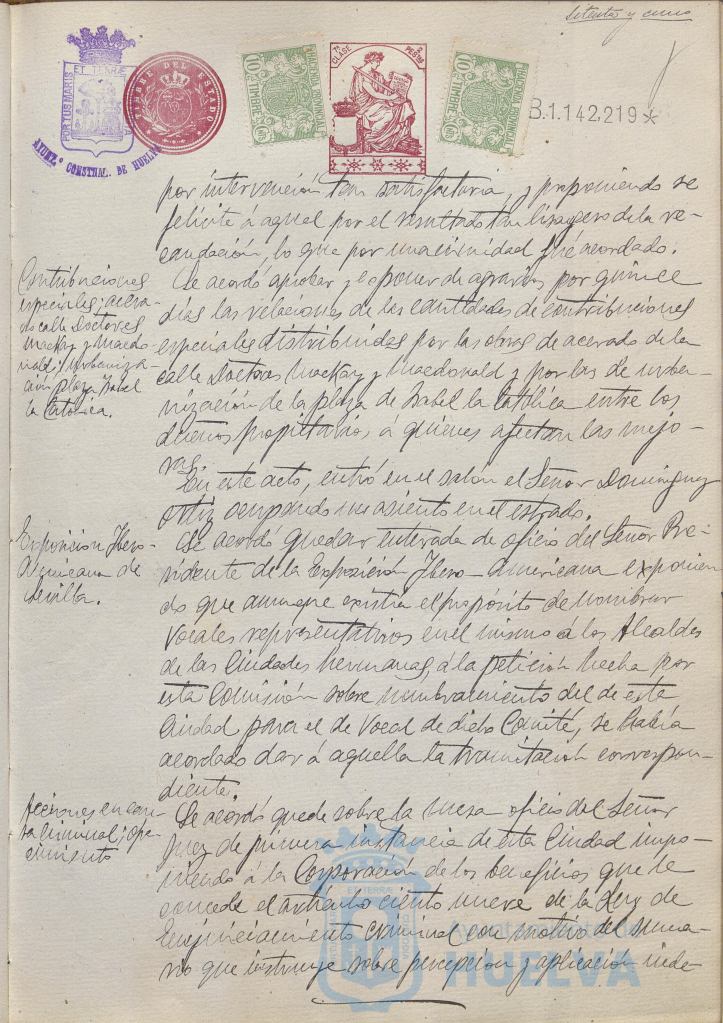 Setenta y cinco
PORTUS MARIS ET TERRÆ CUSTODIA
AYUNT.º CONSTNAL. DE HUELVA
TIMBRE DEL ESTADO
HACIENDA PROVINCIAL
TIMBRE
10
7ª CLASE
2 PESTAS
HACIENDA PROVINCIAL
TIMBRE
10
B.1.142,219*
por intervención tan satisfactoria, y proponiendo se
felicite á aquel por el resultado tan lisongero de la re-
caudación, lo que por unanimidad fué acordado.
Contribuciones
especiales; acera-
do calle Doctores
Mackay y Macdo-
nald; Urbaniza-
ción plaza Isabel
la Católica.
Se acordó aprobar y esponer de agravios por quince
días las relaciones de las cantidades de contribuciones
especiales distribuidas por las obras de acerado de la
calle Doctores Mackay y Macdonald y por las de urba-
nización de la plaza de Isabel la Católica entre los
dueños propietarios á quienes afectan las mejo-
ras.
En este acto, entró en el salón el Señor Dominguez
Ortiz ocupando su asiento en el estrado.
Exposición Ibero-
Americana de
Sevilla.
Se acordó quedar enterada de oficio del Señor Pre-
sidente de la Exposición Ibero-Americana exponien-
do que aunque existía el propósito de nombrar
Vocales representativos en el mismo á los Alcaldes
de las Ciudades hermanas, á la petición hecha por
esta Comisión sobre nombramiento del de esta
Ciudad para el de Vocal de dicho Comité, se había
acordado dar á aquella la tramitación correspon-
diente.
Acciones en cau-
sa criminal; ofre-
cimiento
Se acordó quede sobre la mesa oficio del Señor
Juez de primera instancia de esta Ciudad impo-
niendo á la Corporación de los beneficios que le
concede el artículo ciento nueve de la Ley de
Enjuiciamiento criminal con motivo del suma-
rio que instruye sobre percepción y aplicación inde-
Ayuntamiento de
HUELVA